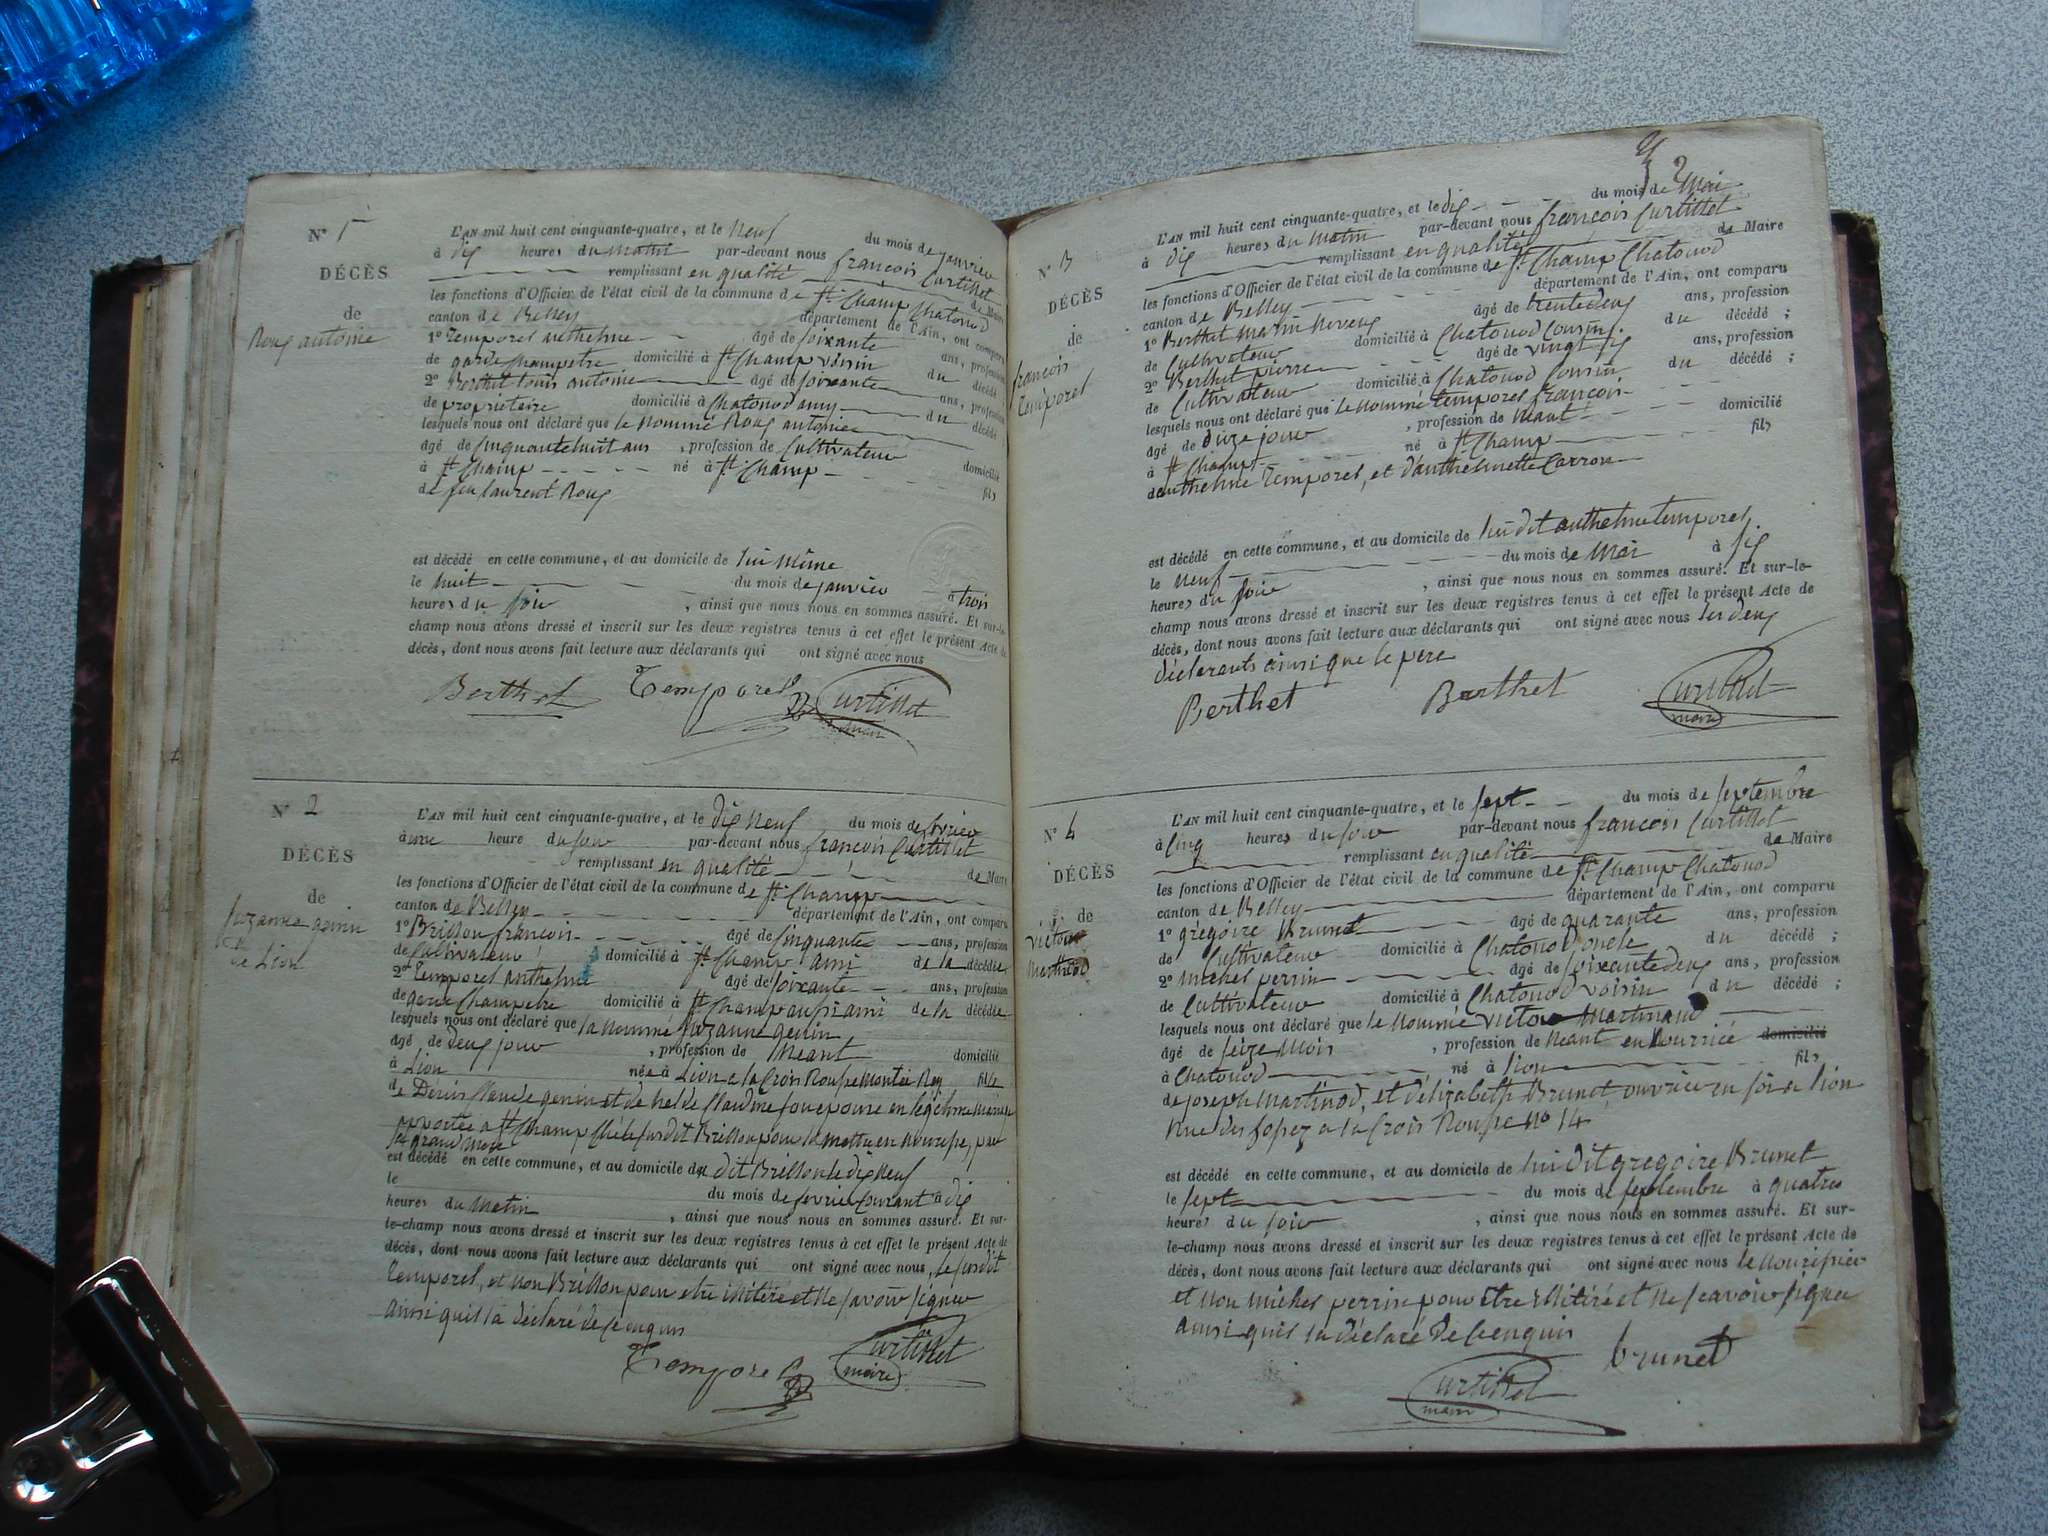 N° 1
DÉCÈS
de
Roux antoine
L'AN mil huit cent cinquante-quatre, et le neuf du mois de janvier
à dix heures du matin par-devant nous françois Curtillet
remplissant en qualité de Maire
les fonctions d'Officier de l'état civil de la commune de St Champ Chatonod
canton de Belley département de l'Ain, ont comparu
1° Temporel anthelme âgé de soixante ans, profession
de garde champetre domicilié à St Champ voisin du décédé
2° Berthet louis antoine âgé de soixante ans, profession
de propriétaire domicilié à Chatonod amy du décédé
lesquels nous ont déclaré que le nommé Roux antoine
âgé de cinquantehuit ans, profession de Cultivateur domicilié
à St Champ né à St Champ fils
de feu laurent Roux
est décédé en cette commune, et au domicile de lui même
le huit du mois de janvier à trois
heures du soir, ainsi que nous nous en sommes assuré. Et sur-le-
champ nous avons dressé et inscrit sur les deux registres tenus à cet effet le présent Acte de
décès, dont nous avons fait lecture aux déclarants qui ont signé avec nous
Berthet Temporel Curtillet
maire
N° 2
DÉCÈS
de
Suzanne genin
de Lion
L'AN mil huit cent cinquante-quatre, et le dix neuf du mois de fevrier
à une heure du soir par-devant nous françois Curtillet
remplissant en qualité de Maire
les fonctions d'Officier de l'état civil de la commune de St Champ
canton de Belley département de l'Ain, ont comparu
1° Brillon francois âgé de cinquante ans, profession
de Cultivateur domicilié à St Champ ami de la décédée
2° Temporel anthelme âgé de soixante ans, profession
de garde Champetre domicilié à St Champ aussi ami de la décédée
lesquels nous ont déclaré que la nommé Suzanne genin
âgé de deux jour, profession de Neant domicilié
à Lion née à Lion a la Croix Rousse Montée Rey fille
de Denis Claude genin et de Claudine son epouse en legitime mariage
apportée a St Champ Chéz le susdit Brillon pour la mettre en nourisse, par
sa grand mere
est décédé en cette commune, et au domicile du dit Brillon le dix neuf
le du mois de fevrier Courant à dix
heures du Matin, ainsi que nous nous en sommes assuré. Et sur-
le-champ nous avons dressé et inscrit sur les deux registres tenus à cet effet le présent Acte de
décès, dont nous avons fait lecture aux déclarants qui ont signé avec nous, le susdit
Temporel, et non Brillon pour etre illitéré et ne savoir signer
ainsi quil la déclaré de ce enquis
Temporel Curtillet
maire
2
N° 3
DÉCÈS
de
françois
Temporel
L'AN mil huit cent cinquante-quatre, et le dix du mois de Mai
à dix heures du matin par-devant nous françois Curtillet
remplissant en qualité de Maire
les fonctions d'Officier de l'état civil de la commune de St Champ Chatonod
canton de Belley département de l'Ain, ont comparu
1° Berthet Marin âgé de trentedeux ans, profession
de Cultivateur domicilié à Chatonod Cousin du décédé ;
2° Berthet pierre âgé de vingt six ans, profession
de Cultivateur domicilié à Chatonod Cousin du décédé ;
lesquels nous ont déclaré que le nommé temporel françois
âgé de jour, profession de Neant domicilié
à St Champ né à St Champ fils
d'anthelme Temporel, et d'anthelmette Carron
est décédé en cette commune, et au domicile de lui dit anthelme temporel
le neuf du mois de Mai à six
heures du soir, ainsi que nous nous en sommes assuré. Et sur-le-
champ nous avons dressé et inscrit sur les deux registres tenus à cet effet le présent Acte de
décès, dont nous avons fait lecture aux déclarants qui ont signé avec nous les deux
déclarants ainsi que le pere
Berthet Berthet Curtillet
maire
N° 4
DÉCÈS
de
victor
Martinod
L'AN mil huit cent cinquante-quatre, et le sept du mois de septembre
à cinq heures du soir par-devant nous francois Curtillet
remplissant en qualité de Maire
les fonctions d'Officier de l'état civil de la commune de St Champ Chatonod
canton de Belley département de l'Ain, ont comparu
1° gregoire Brunet âgé de quarante ans, profession
de Cultivateur domicilié à Chatonod oncle du décédé ;
2° michel perrin âgé de soixantedeux ans, profession
de Cultivateur domicilié à Chatonod voisin du décédé ;
lesquels nous ont déclaré que le nommé victor Martinod
âgé de seize mois, profession de neant en nourrice domicilié
à Chatonod né à lion fils
de joseph Martinod, et d'elizabeth Brunet, ouvrier en soie a lion
rue des fossez a la Croix Rousse no 14
est décédé en cette commune, et au domicile de lui dit gregoire Brunet
le sept du mois de septembre à quatres
heures du soir, ainsi que nous nous en sommes assuré. Et sur-
le-champ nous avons dressé et inscrit sur les deux registres tenus à cet effet le présent Acte de
décès, dont nous avons fait lecture aux déclarants qui ont signé avec nous le nourissier
et non michel perrin pour être illitéré et ne scavoir signer
ainsi quil la déclaré de ce enquis
brunet
Curtillet
maire